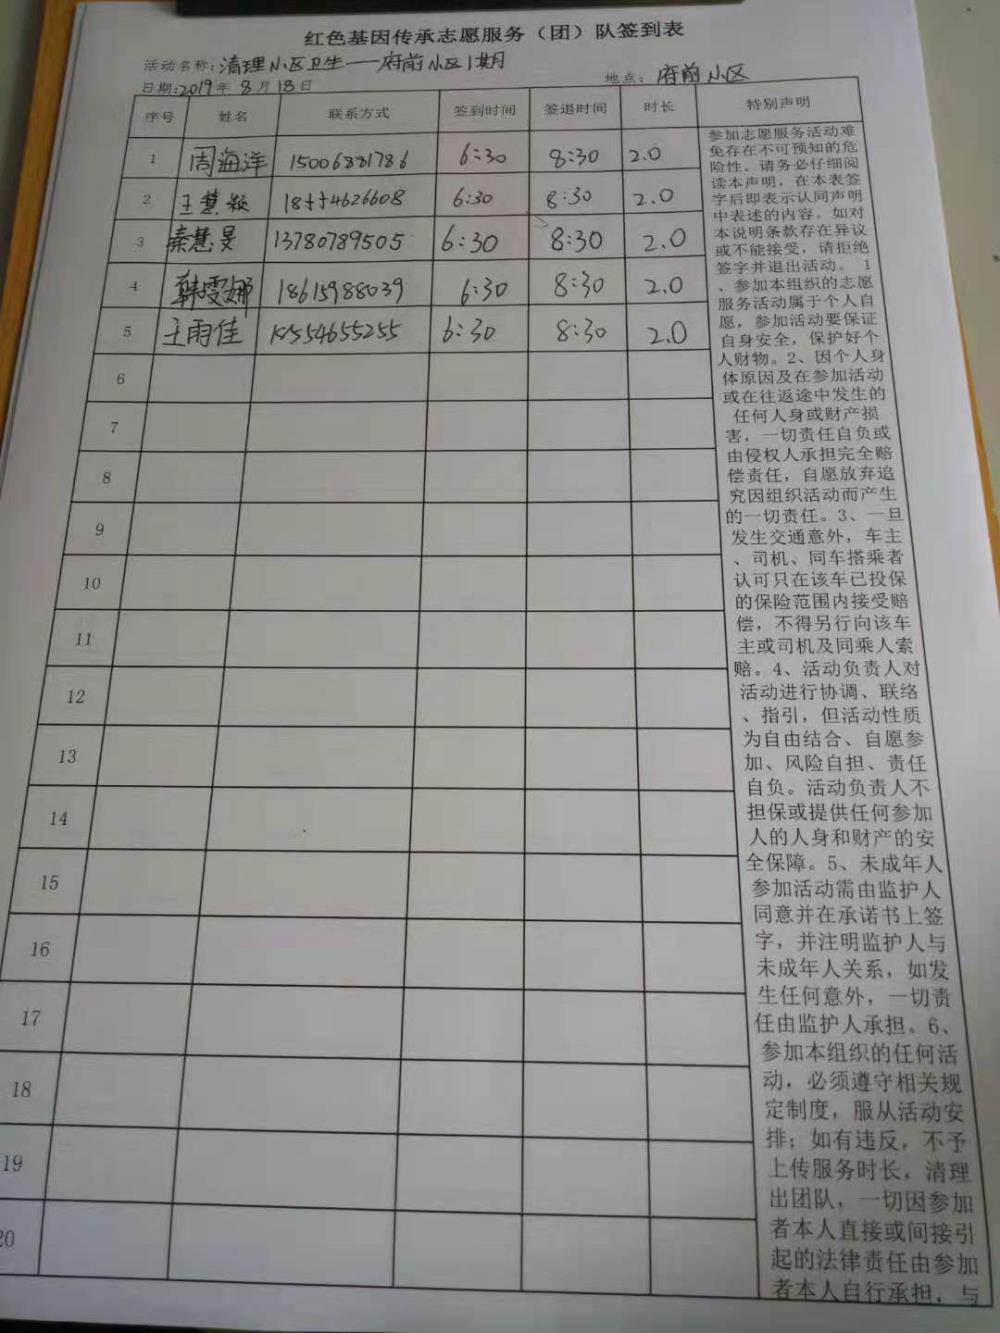 红色基因传承志愿服务（团）队签到表
活动名称：清理小区卫生——府前小区1期
地点：府前小区
日期：2019年8月18日
序号 姓名 联系方式 签到时间 签退时间 时长 特别声明
1 周海洋 15006881786 6:30 8:30 2.0
2 王慧颖 4626608 6:30 8:30 2.0
3 秦慧旻 13780789505 6:30 8:30 2.0
4 韩雯娜 18615988039 6:30 8:30 2.0
5 王雨佳 54655255 6:30 8:30 2.0
6
7
8
9
10
11
12
13
14
15
16
17
18
19
20
参加志愿服务活动难
免存在不可预知的危
险性。请务必仔细阅
读本声明，在本表签
字后即表示认同声明
中表述的内容。如对
本说明条款存在异议
或不能接受，请拒绝
签字并退出活动。 1
、参加本组织的志愿
服务活动属于个人自
愿，参加活动要保证
自身安全，保护好个
人财物。2、因个人身
体原因及在参加活动
或在往返途中发生的
任何人身或财产损
害，一切责任自负或
由侵权人承担完全赔
偿责任，自愿放弃追
究因组织活动而产生
的一切责任。3、一旦
发生交通意外，车主
、司机、同车搭乘者
认可只在该车已投保
的保险范围内接受赔
偿，不得另行向该车
主或司机及同乘人索
赔。4、活动负责人对
活动进行协调、联络
、指引，但活动性质
为自由结合、自愿参
加、风险自担、责任
自负。活动负责人不
担保或提供任何参加
人的人身和财产的安
全保障。5、未成年人
参加活动需由监护人
同意并在承诺书上签
字，并注明监护人与
未成年人关系，如发
生任何意外，一切责
任由监护人承担。6、
参加本组织的任何活
动，必须遵守相关规
定制度，服从活动安
排；如有违反，不予
上传服务时长，清理
出团队，一切因参加
者本人直接或间接引
起的法律责任由参加
者本人自行承担，与